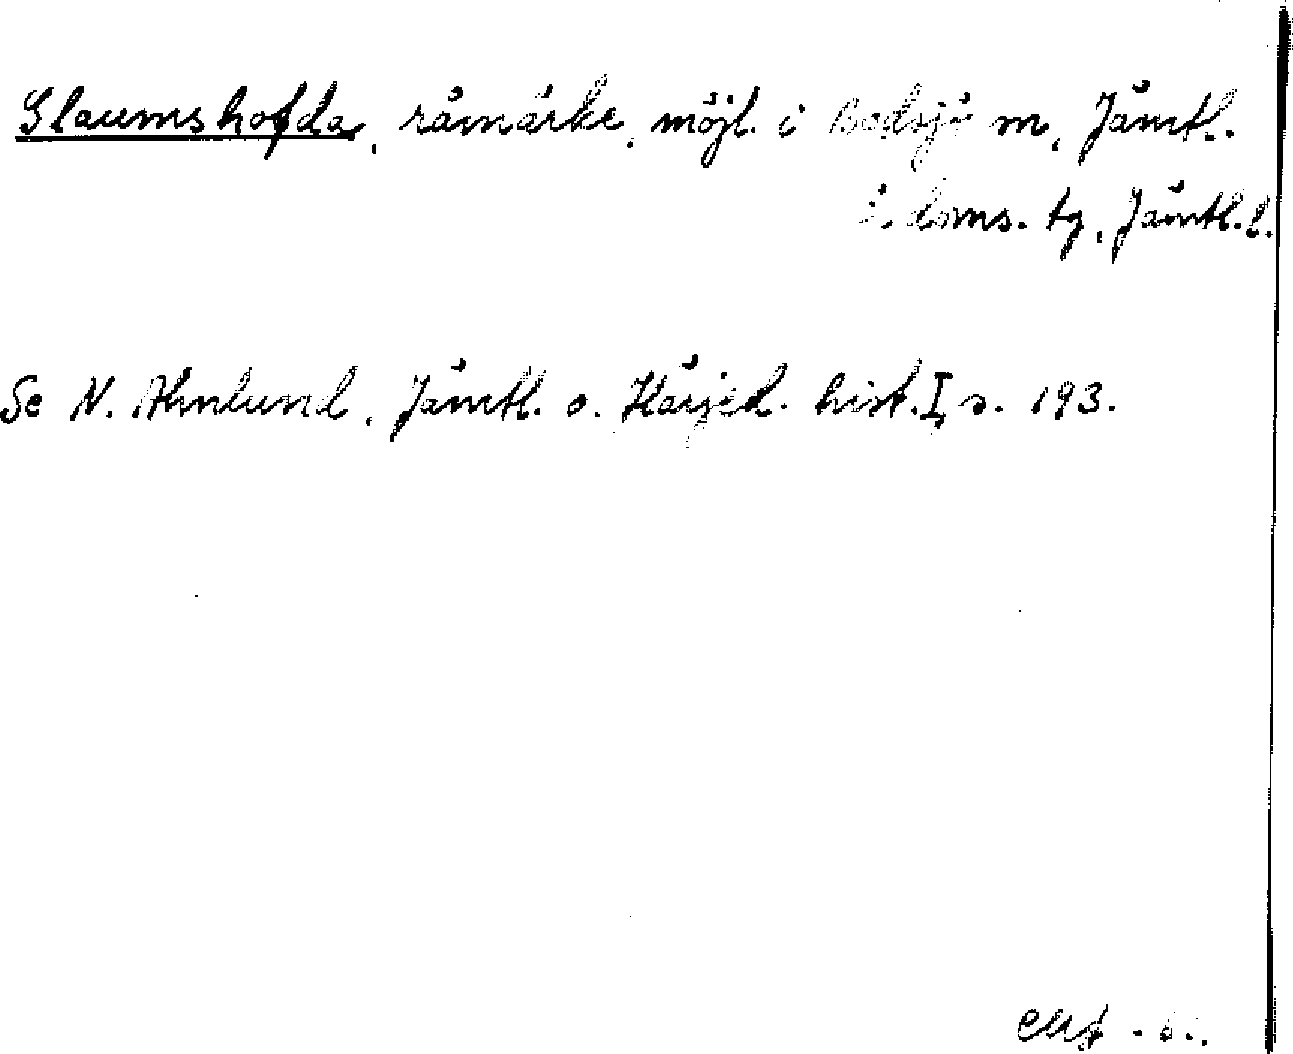 Glaumshofda, råmärke, möjl. i Bodsjö m, Jämtl.
ö. doms. tg, Jämtl. l.
Se N. Ahnlund, Jämtl. o. Härjed. hist. I, s. 193.